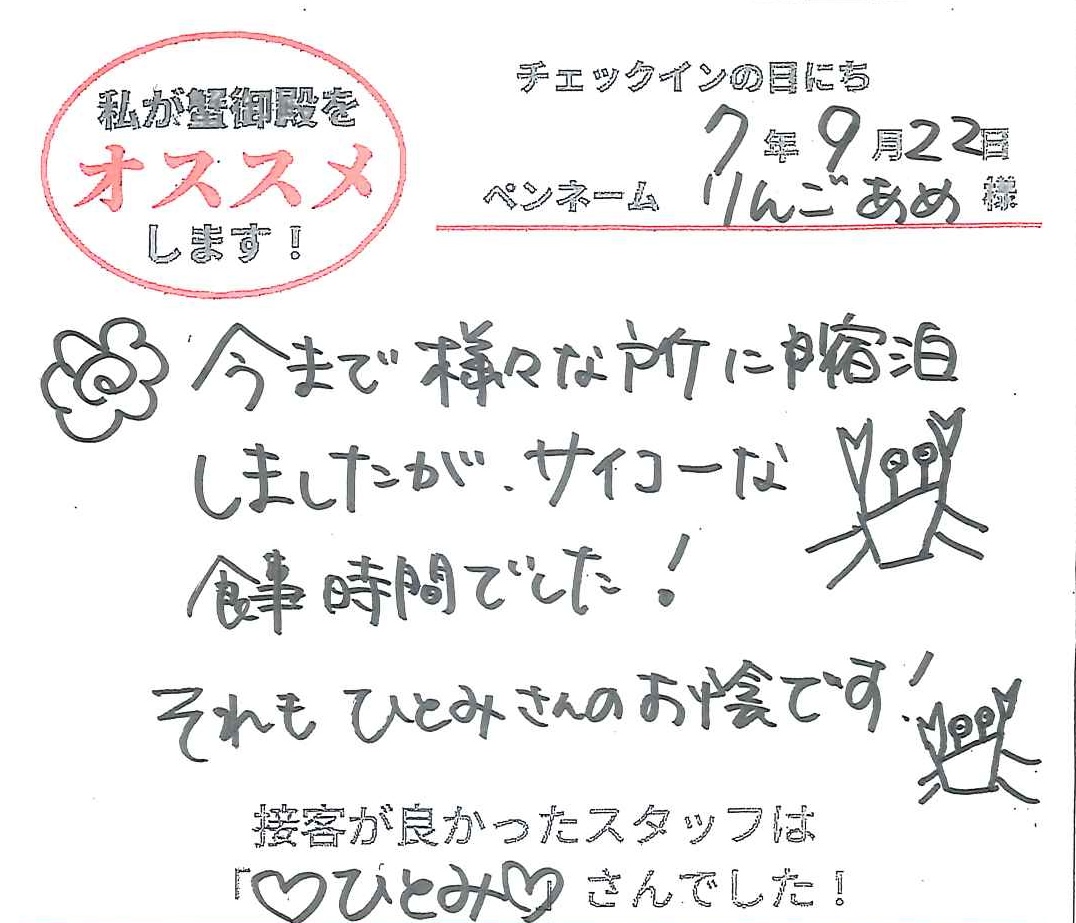 私が蟹御殿を
オススメ
します!
チェックインの日にち
7年9月22日
ペンネーム りんごあめ 様
今まで様々な所に宿泊
しましたが、サイコーな
食事時間でした!
それもひとみさんのお陰です!
接客が良かったスタッフは
「♡ひとみ♡」さんでした!